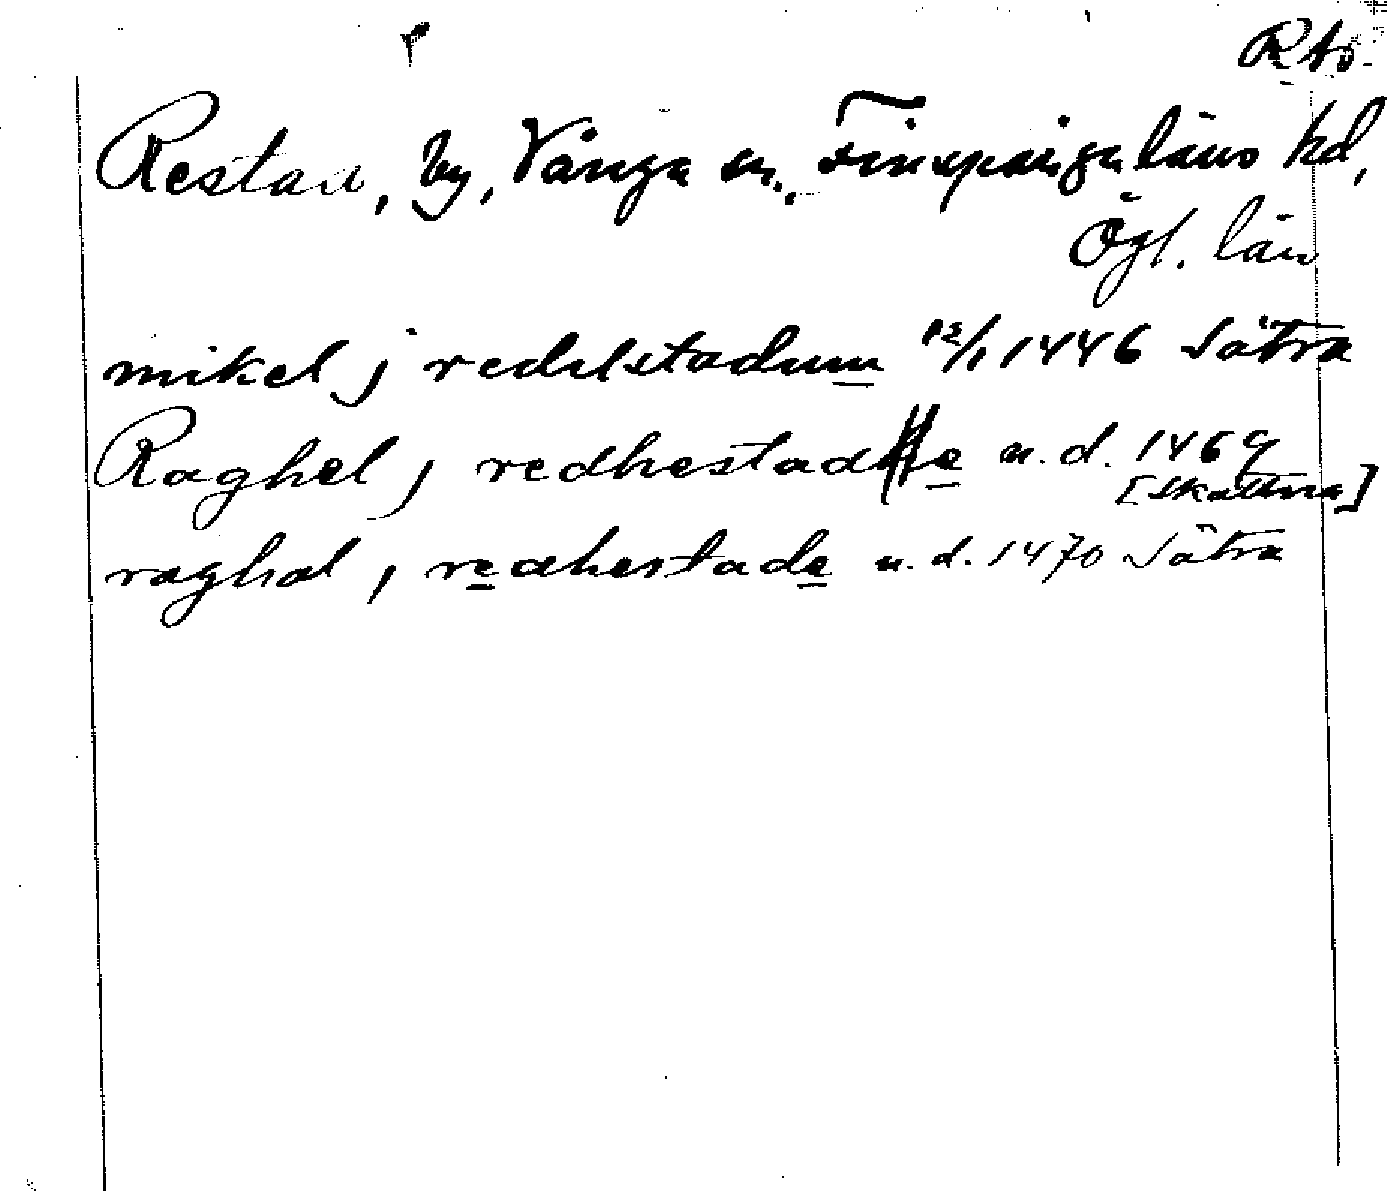 RAö.
Restad, by, Vånga sn., Finspånga läns hd,
Ögl. län
mikel j redelstadum 12/1 1446 Sätra
Raghel j redhestade u.d. 1469
[Skattna]
raghol j redhestade u.d. 1470 Sätra